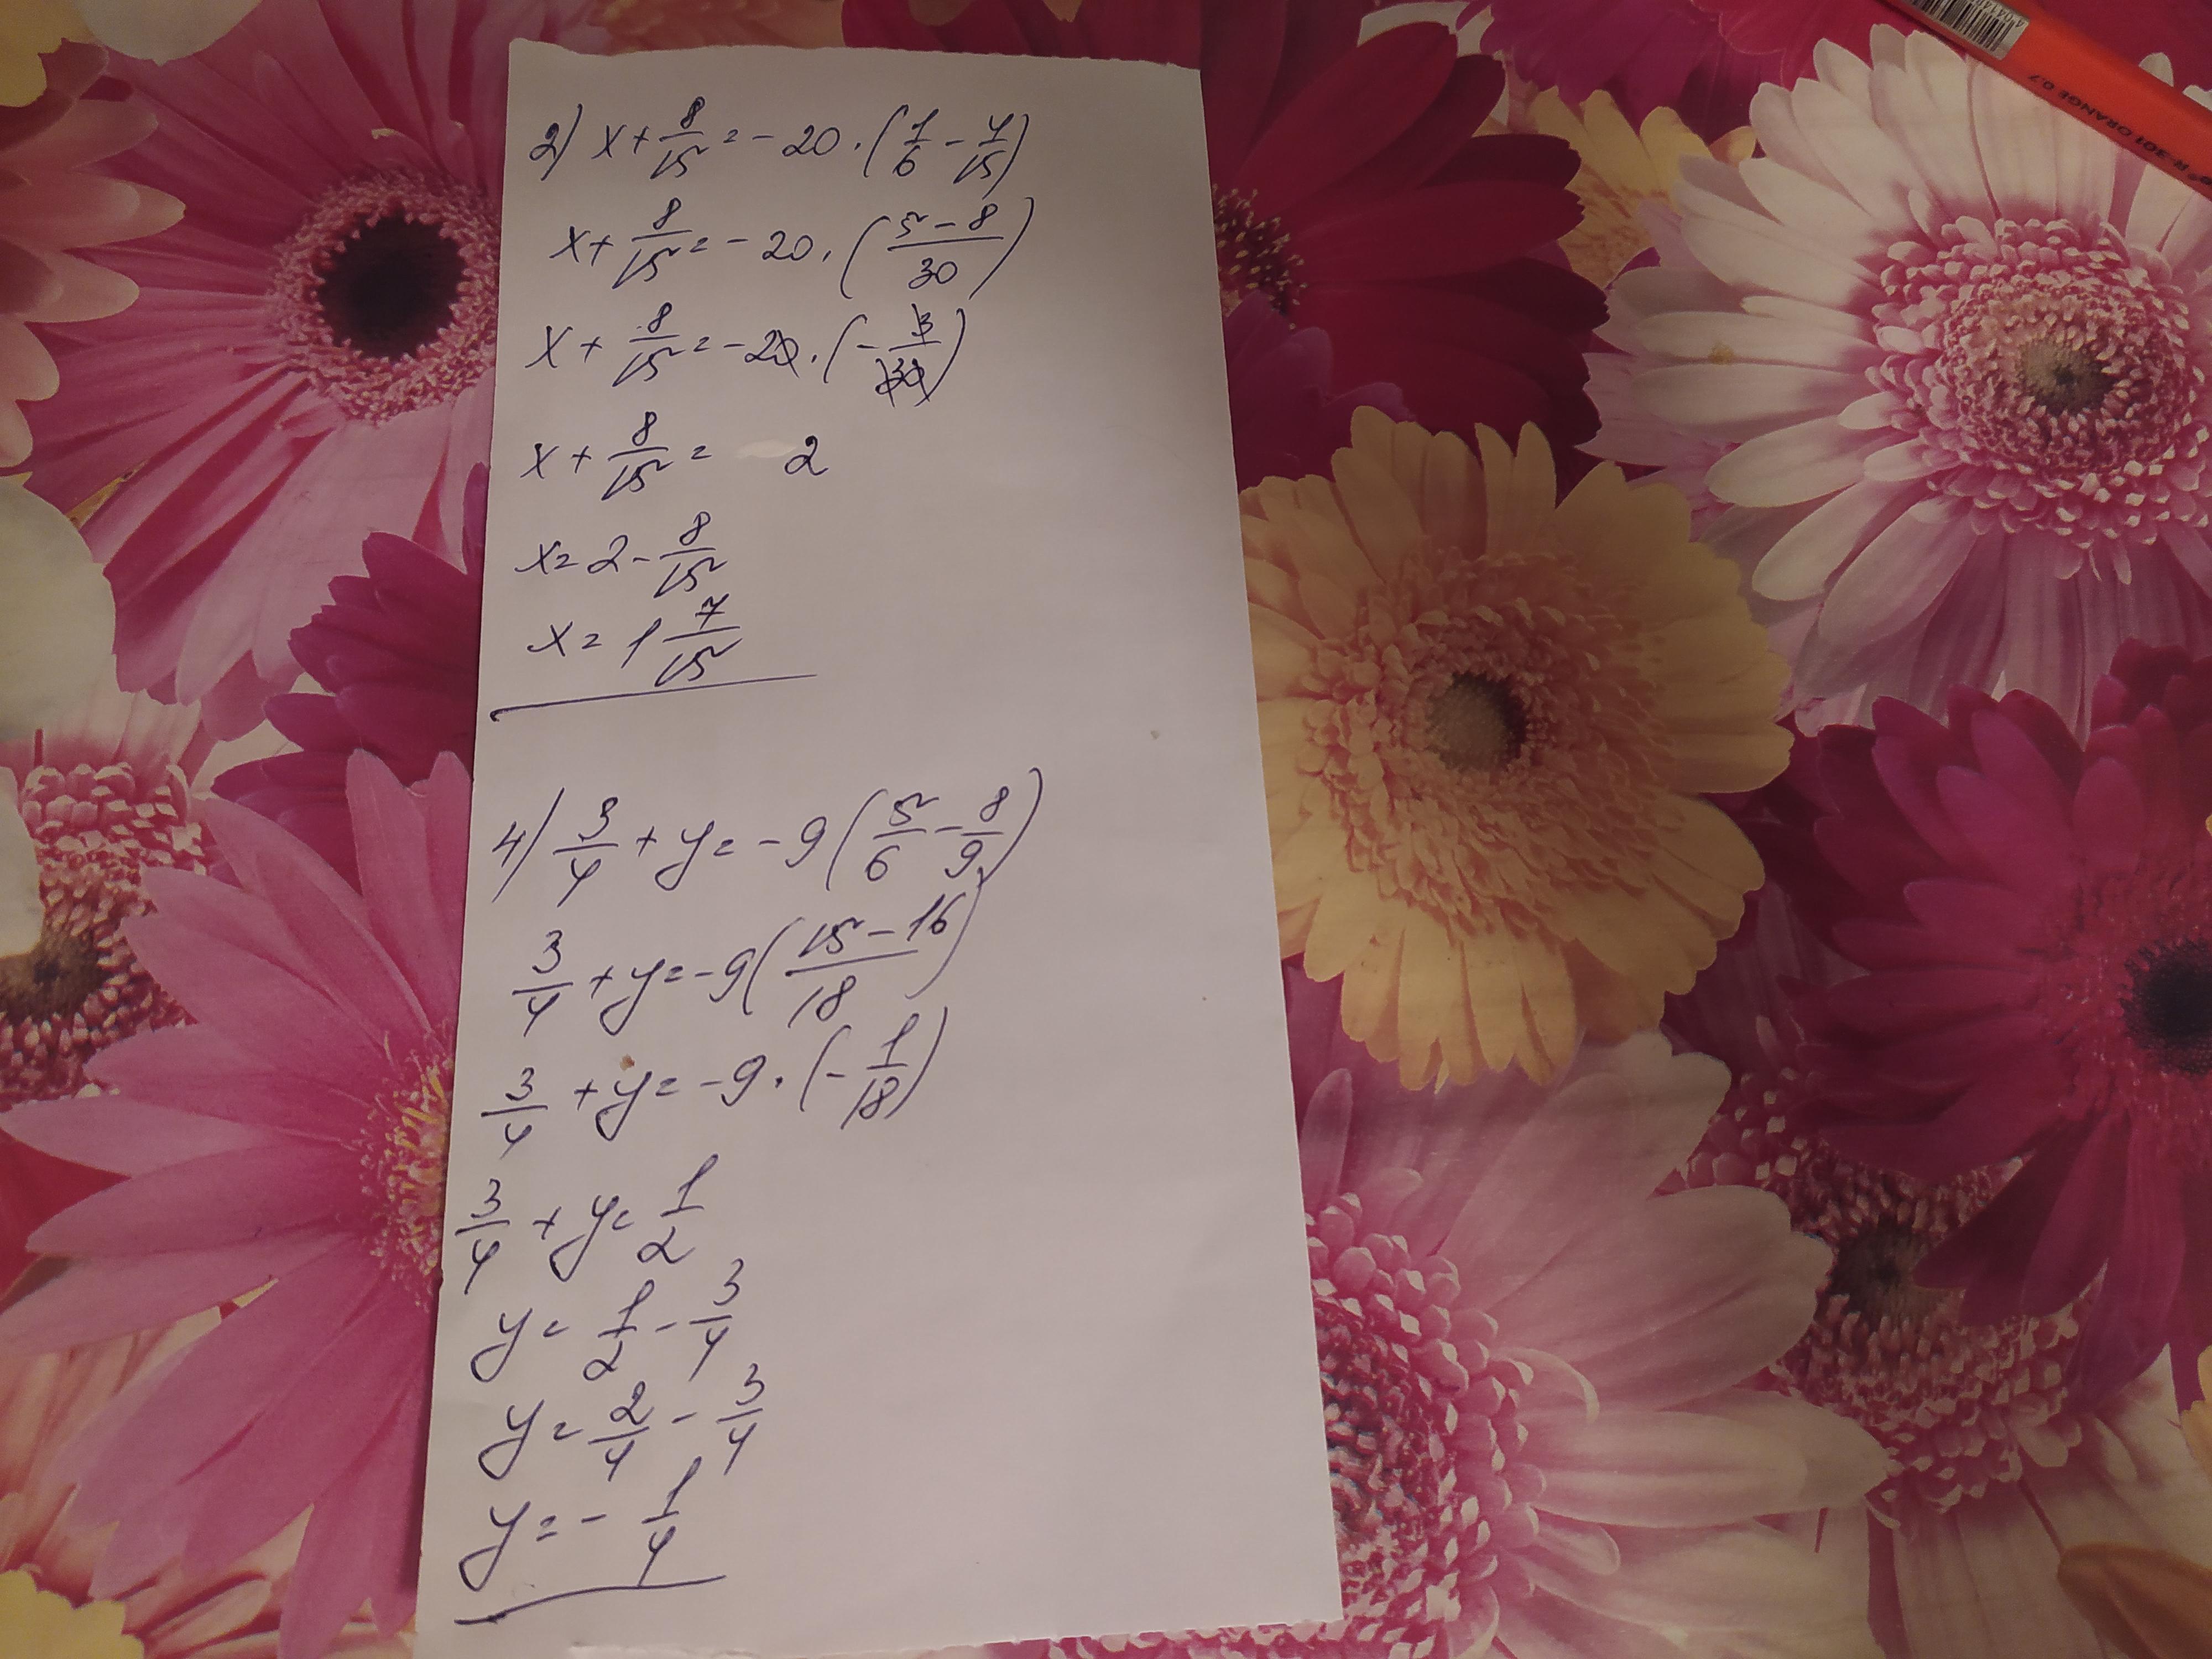 2) x + 8/15 = - 20 · (1/6 - 4/15)
x + 8/15 = - 20 · (5 - 8 / 30)
x + 8/15 = - 20 · (- 3/30)
x + 8/15 = 2
x = 2 - 8/15
x = 1 7/15
4) 3/4 + y = - 9 (5/6 - 8/9)
3/4 + y = - 9 (15 - 16 / 18)
3/4 + y = - 9 · (- 1/18)
3/4 + y = 1/2
y = 1/2 - 3/4
y = 2/4 - 3/4
y = - 1/4
R 301 ORANGE 0.7